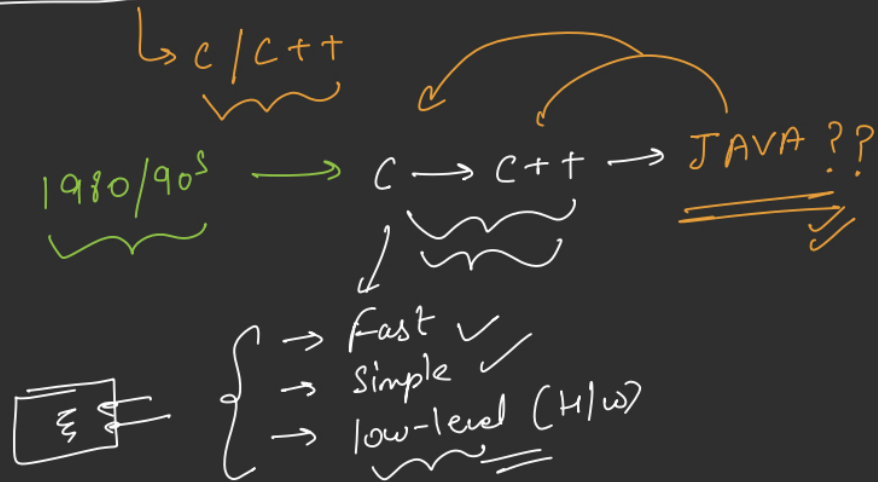 ↳ C/C++
1980/90s → C → C++ → JAVA ??
→ Fast ✓
→ Simple ✓
→ low-level (H/w)